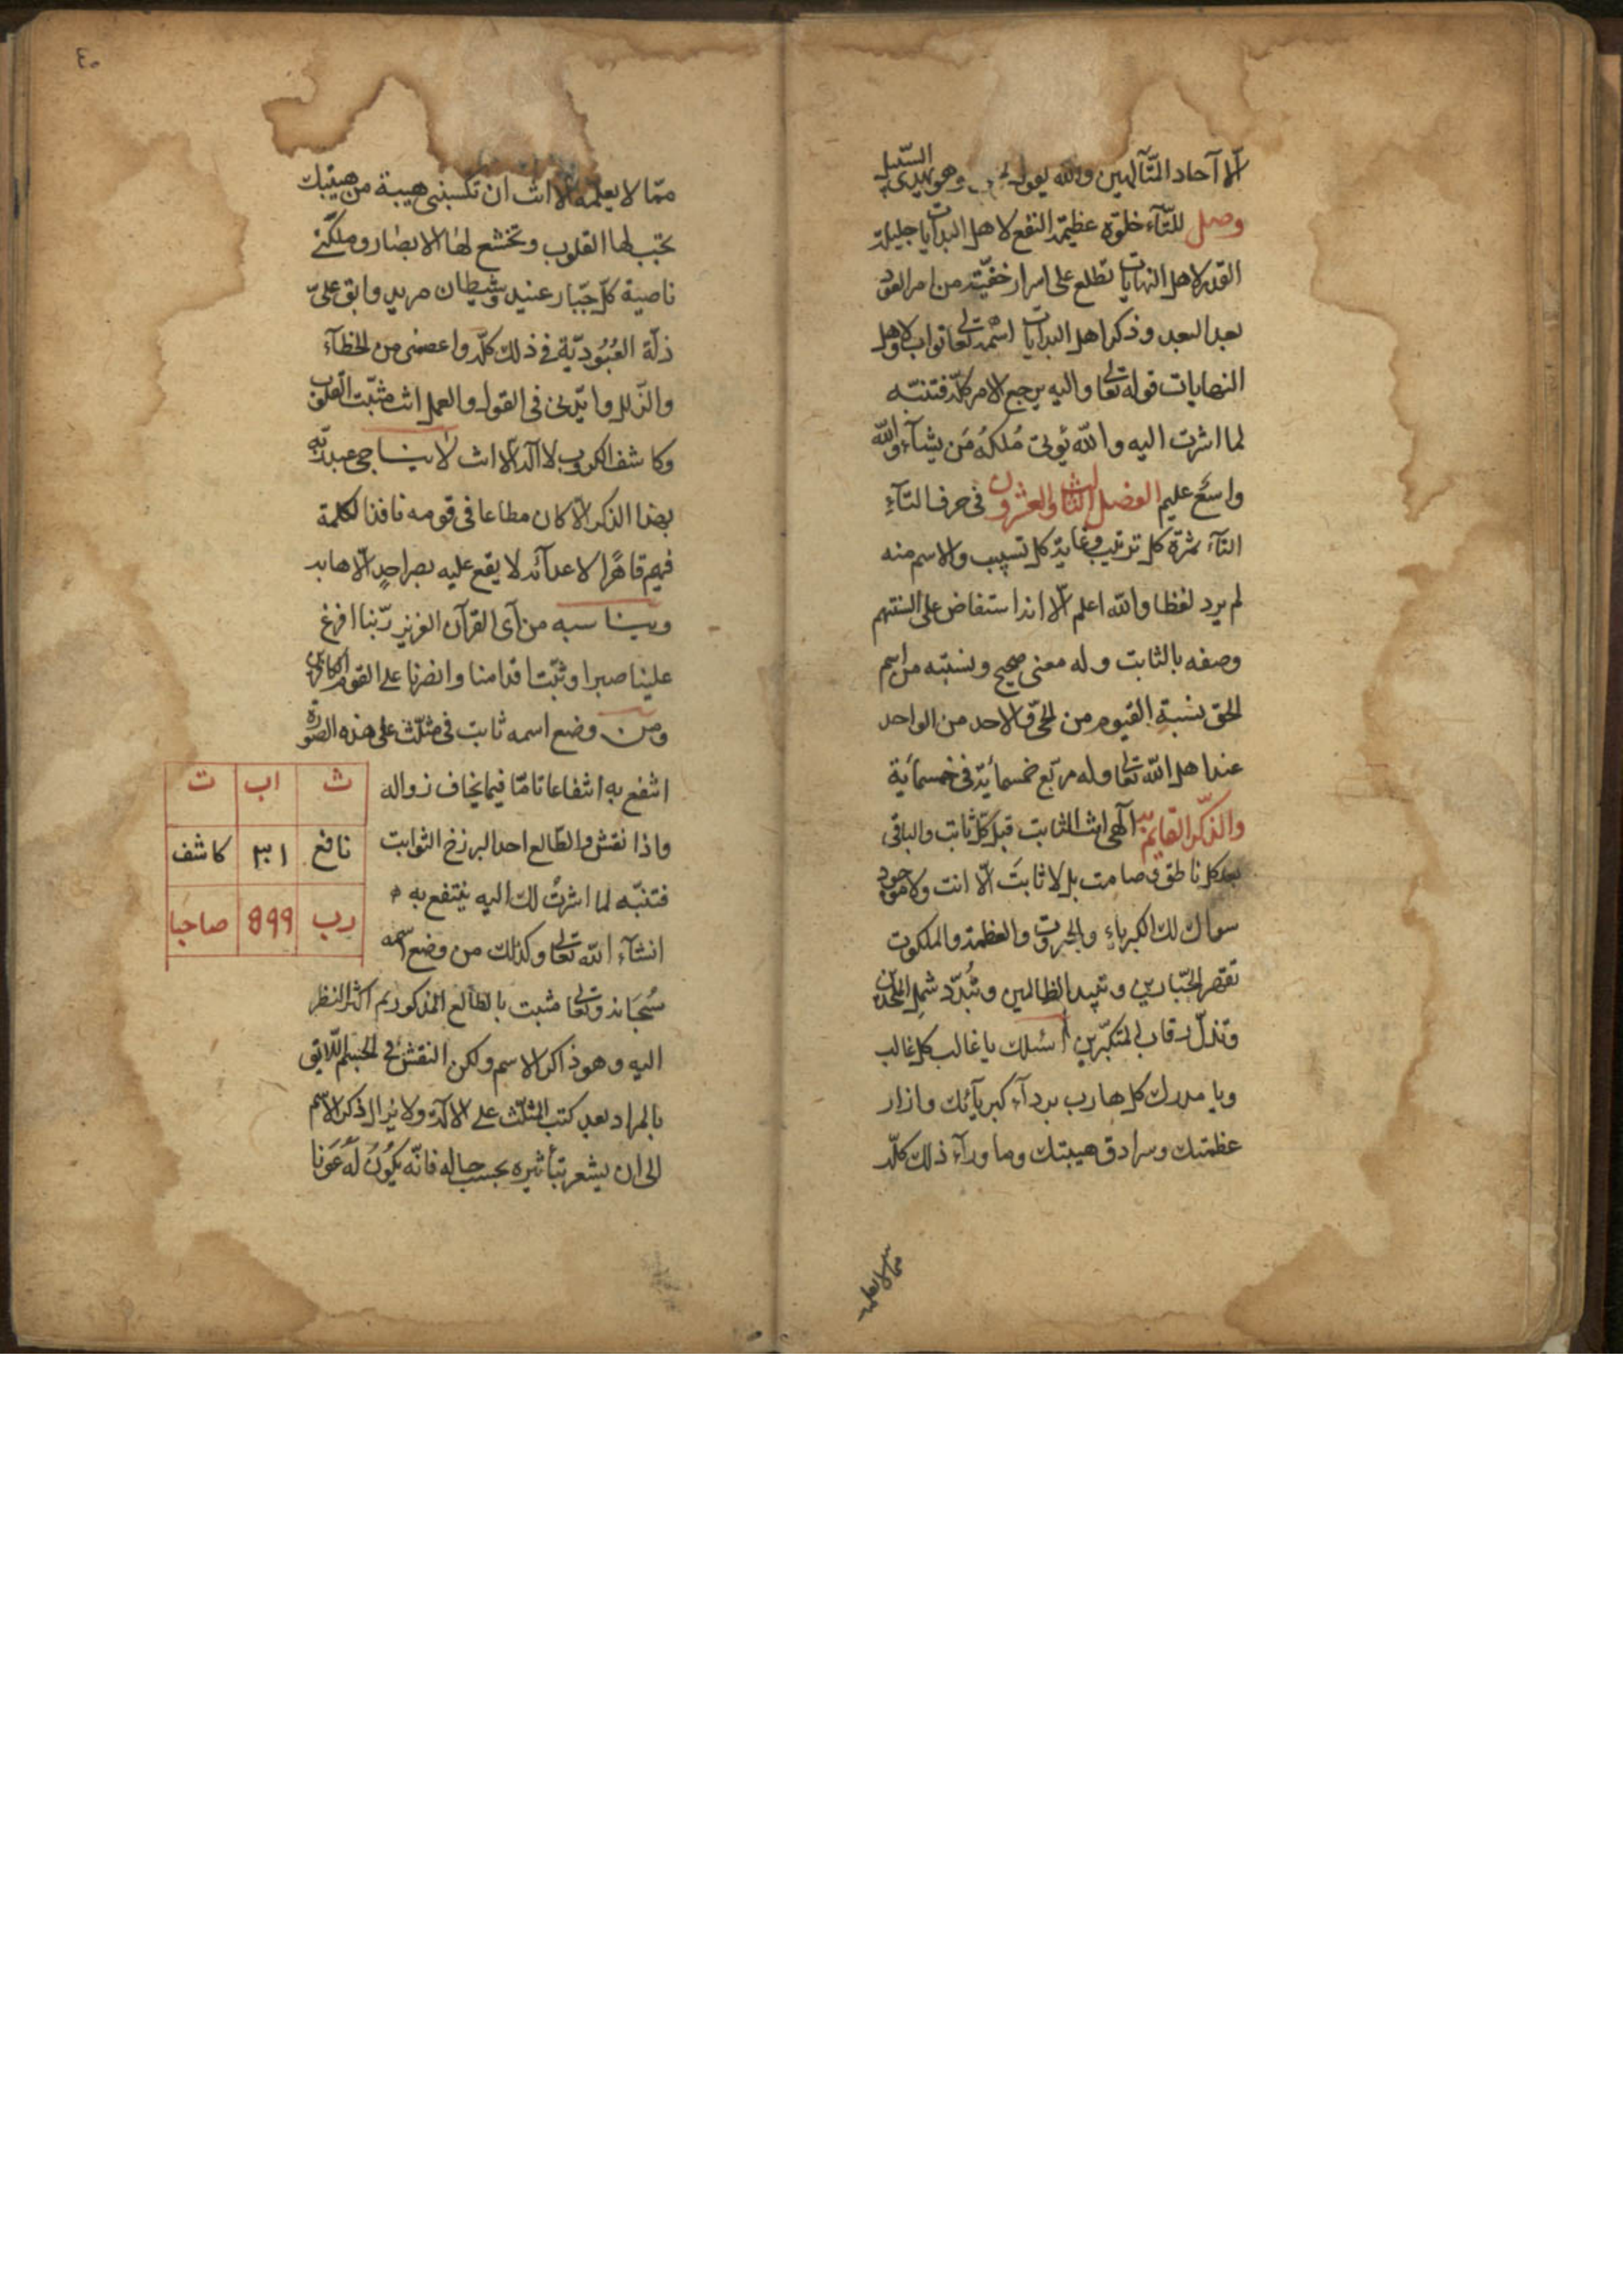 الا آحاد المتآلهين والله يقول وهو يهدى السبيل
وصل للتآء خلوة عظيمة النفع لاهل البدايات جليلة
القدر لاهل النهايات تطلع على اسرار خفيّة من امر العَود
بعد البعد وذكر اهل البدايات اسمه تعالى تواب ولاهل
النهايات قوله تعالى واليه يرجع الامر كلّه فتنبّه
لما اشرت اليه والله يُوتى مُلكهُ مَن يشآء والله
واسعٌ عليم الفصل الثالث والعشرون فى حرف الثآء
الثآء ثمرة كل ترتيب وغاية كل تسبيب والاسم منه
لم يرد لفظا والله اعلم الّا انه استفاض على السنتهم
وصفه بالثابت وله معنى صحيح ونسبته من اسم
الحق بنسبة القيوم من الحىّ والاحد من الواحد
عند اهل الله تعالى وله مربّع خمسمأية فى خمسمأية
والذكر القايم به الهى انت الثابت قبل كلّ ثابت والباقى
بعد كل ناطق وصامت بل لا ثابتَ الّا انت ولا موجود
سواك لك الكبرياء والجبروت والعظمة والملكوت
تقهر الجبّارين وتبيد الظالمين وتُبدّد شمل الملحدين
وتذلّ رقاب المتكبّرين اسئلك يا غالب كل غالب
ويا مدرك كل هارب بردآء كبريآئك وازار
عظمتك وسرادق هيبتك وما ورآء ذلك كلّه
مما لا يعلمه
٤٠
ممّا لا يعلمه الّا انت ان تكسبنى هيبة من هيبتك
تجب لها القلوب وتخشع لها الابصار وملكّنى
ناصية كلّ جبّار عنيد وشيطان مريد وابق علىّ
ذلّة العُبُوديّة فى ذلك كلّه واعصمنى من الخطآء
والزّلل وايّدنى فى القول والعمل انت مثبّت القلوب
وكاشف الكروب لا اله الّا انت لا يناجى عبد ربّه
بهذا الذكر الّا كان مطاعا فى قومه نافذ الكلمة
فيهم قاهرًا لاعدآئه لا يقع عليه بصر احدٍ الّا هابه
ويناسبه من آى القرآن العزيز ربّنا افرغ
علينا صبرا وثبّت اقدامنا وانصرنا على القوم الكافرين
ومن وضع اسمه ثابت فى مثلّث على هذه الصّورة
انتفع به انتفاعا تامّا فيما يخاف زواله
واذا نقش والطّالع احد البرزخ الثوابت
فتنبّه لما اشرتُ لك اليه ينتفع به
انشآء الله تعالى وكذلك من وضع اسمه
ث اب ت
نافع ٣١ كاشف
رب 899 صاحبا
سُبحانه وتعالى مثبت بالطالع المذكور ثم اكثر النظر
اليه وهو ذاكر الاسم ولكن النقش فى الجسم اللّايق
بالمراد بعد كتب المثلّث على الالة ولا يزال ذكر الاسم
الى ان يشعر بتأثيره بحسب حاله فانّه يكُونُ لَهُ عَونا